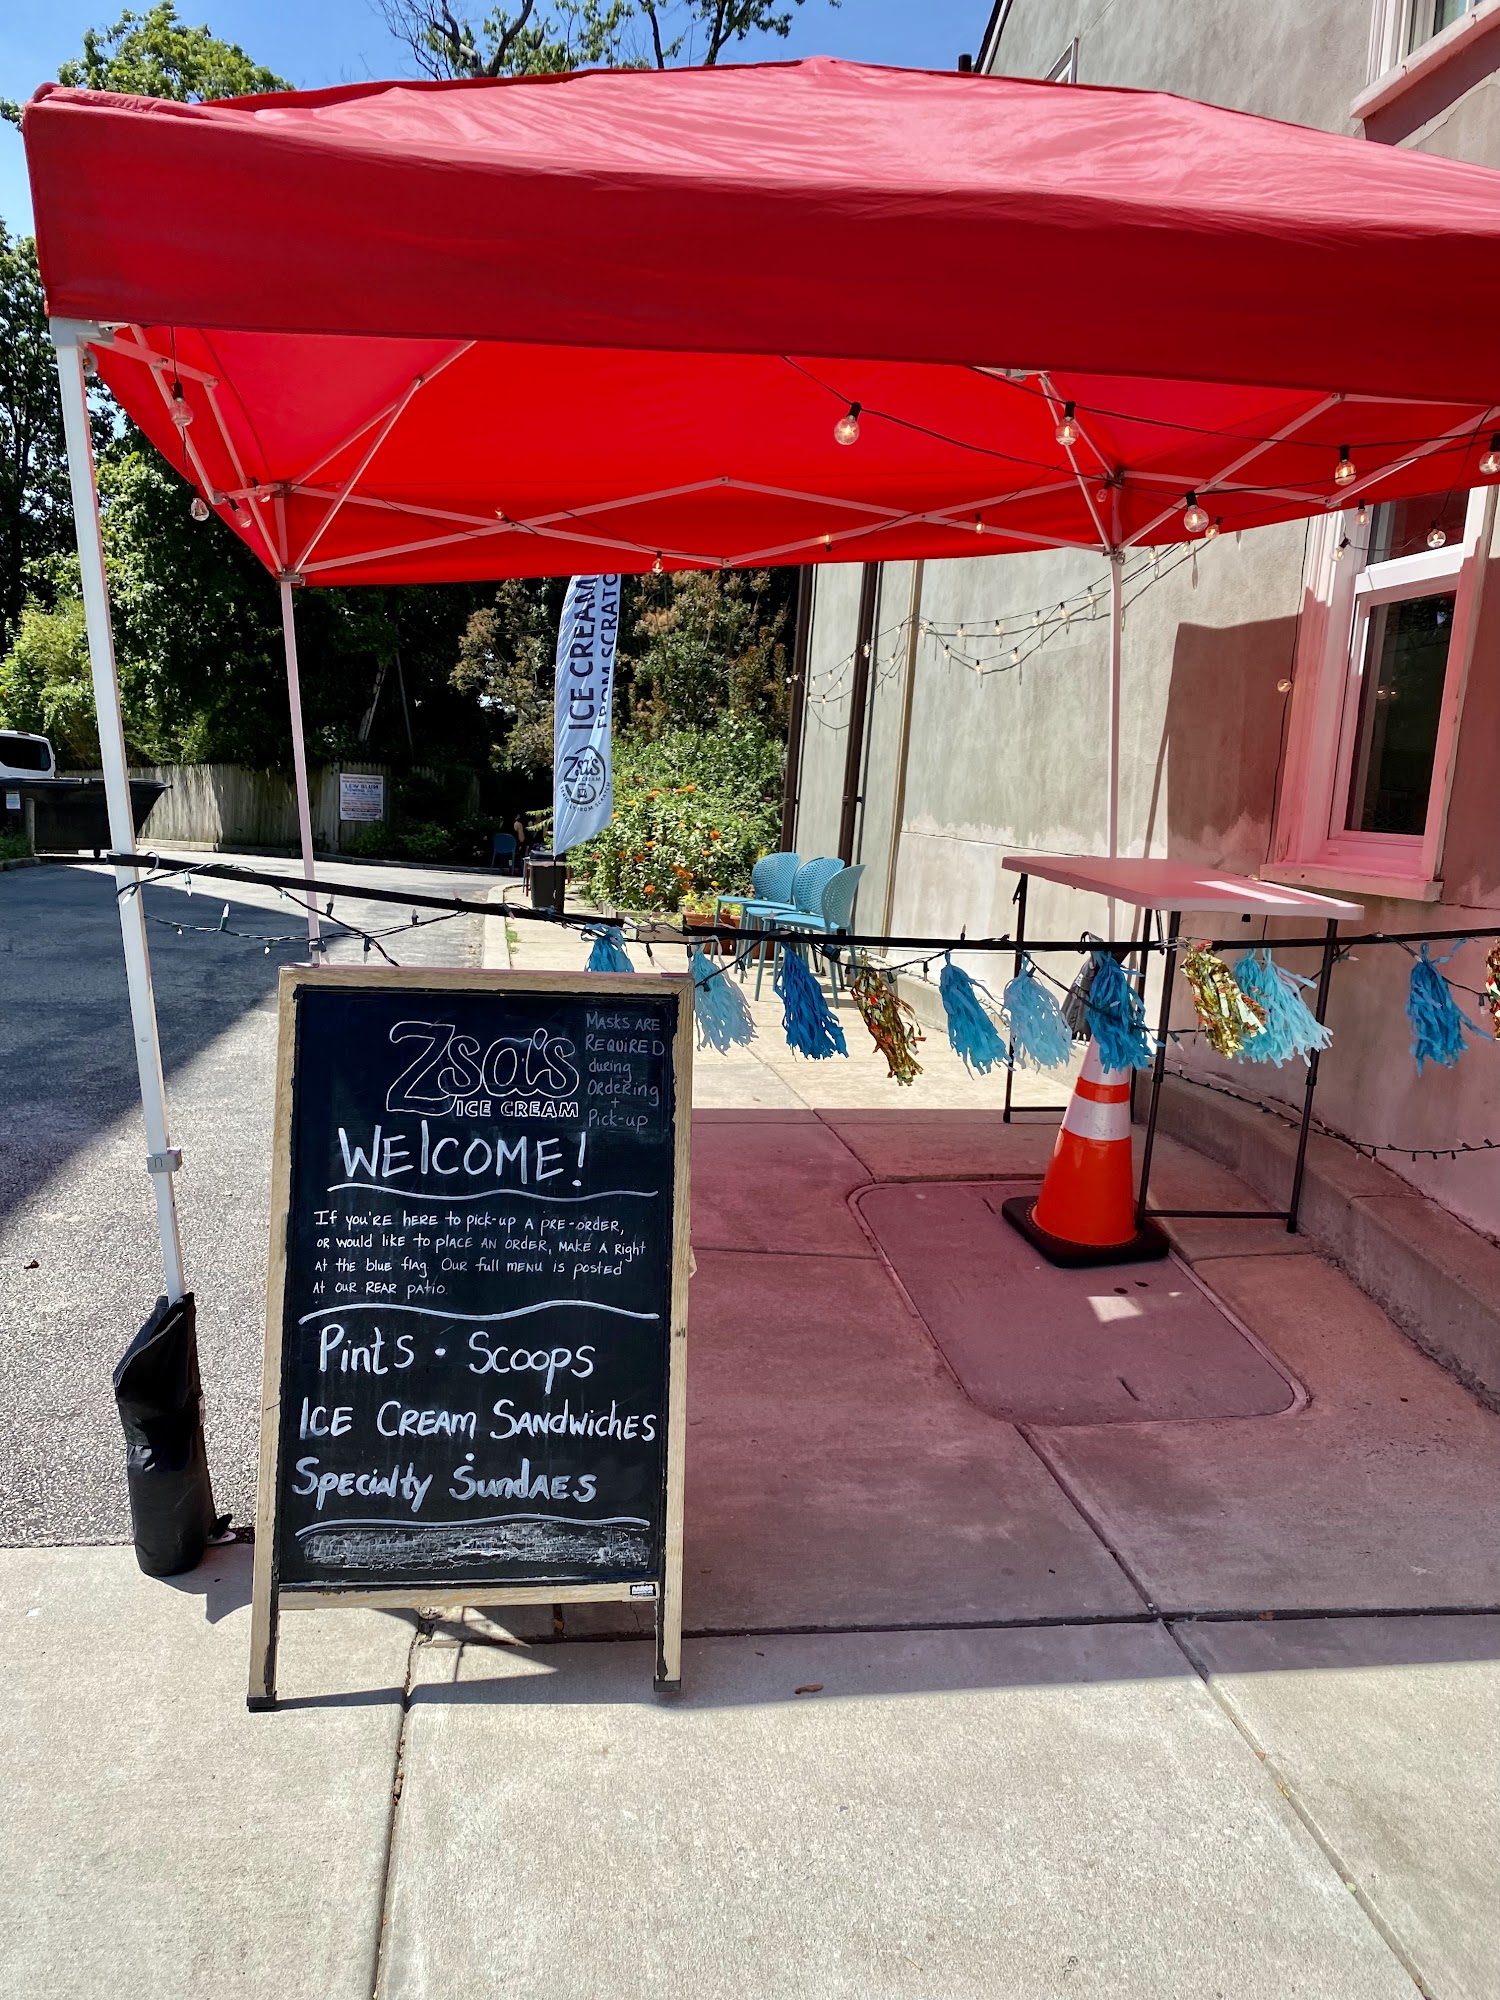 ICE CREAM
FROM SCRATC
Zsa's
ICE CREAM
Zsa's
ICE CREAM
MASKS ARE
REQUIRED
during
Ordering
+
Pick-up
WELCOME!
If you're here to pick-up a pre-order,
or would like to place an order, make a right
at the blue flag. Our full menu is posted
at our rear patio.
Pints • Scoops
Ice Cream Sandwiches
•
Specialty Sundaes